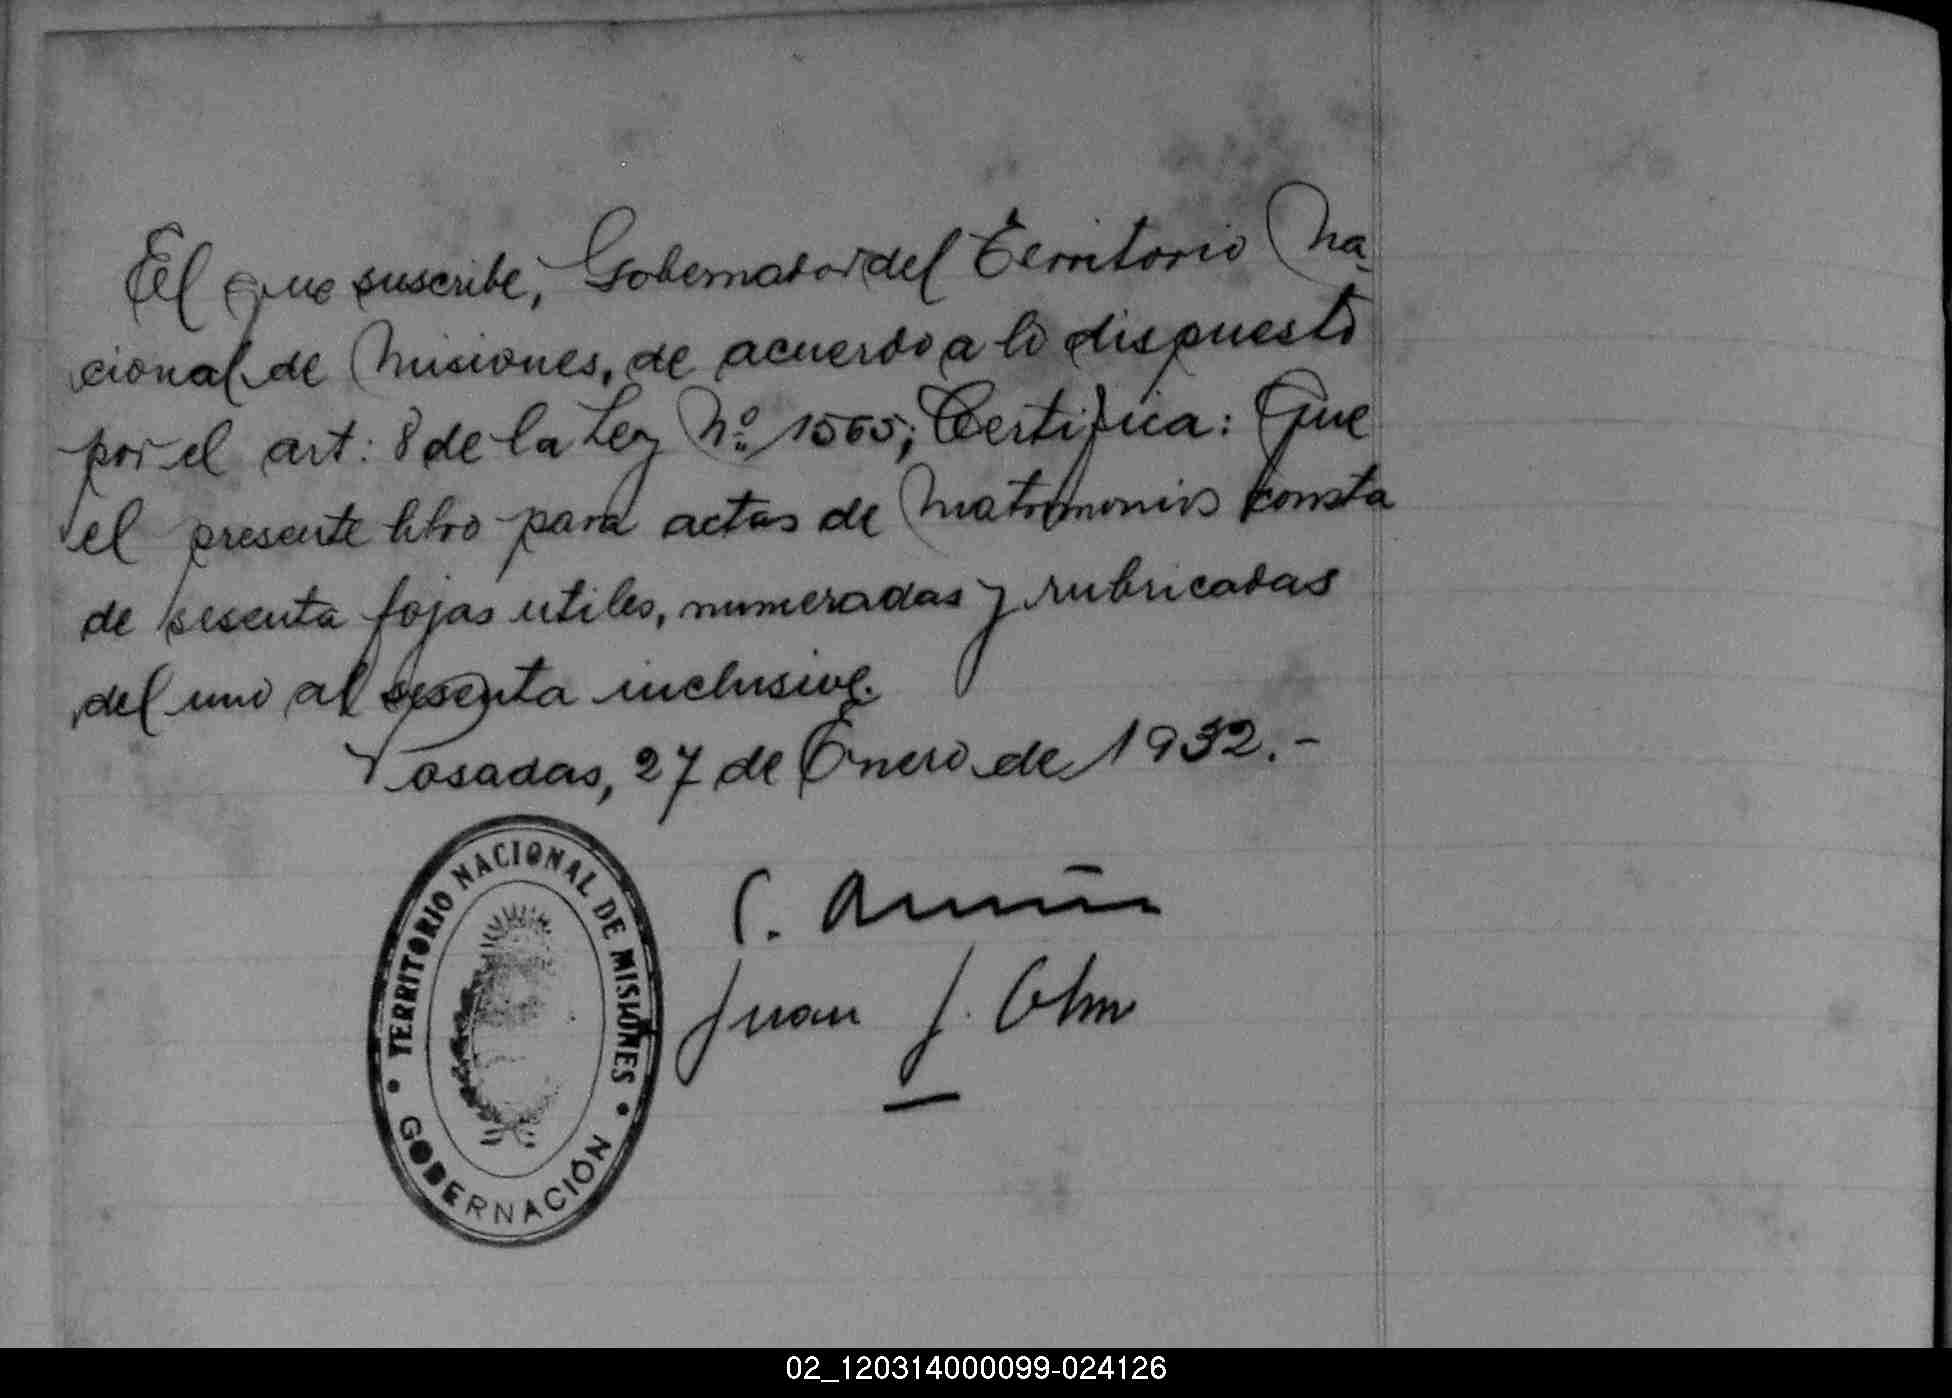 El que suscribe, Gobernador del Territorio Na-
cional de Misiones, de acuerdo a lo dispuesto
por el art: 8 de la Ley Nº 1565; Certifica: Que
el presente libro para actas de Matrimonios consta
de sesenta fojas utiles, numeradas y rubricadas
del uno al sesenta inclusive.
Posadas, 27 de Enero de 1932.-
TERRITORIO NACIONAL DE MISIONES
GOBERNACIÓN
C.
Juan J.
02_120314000099-024126